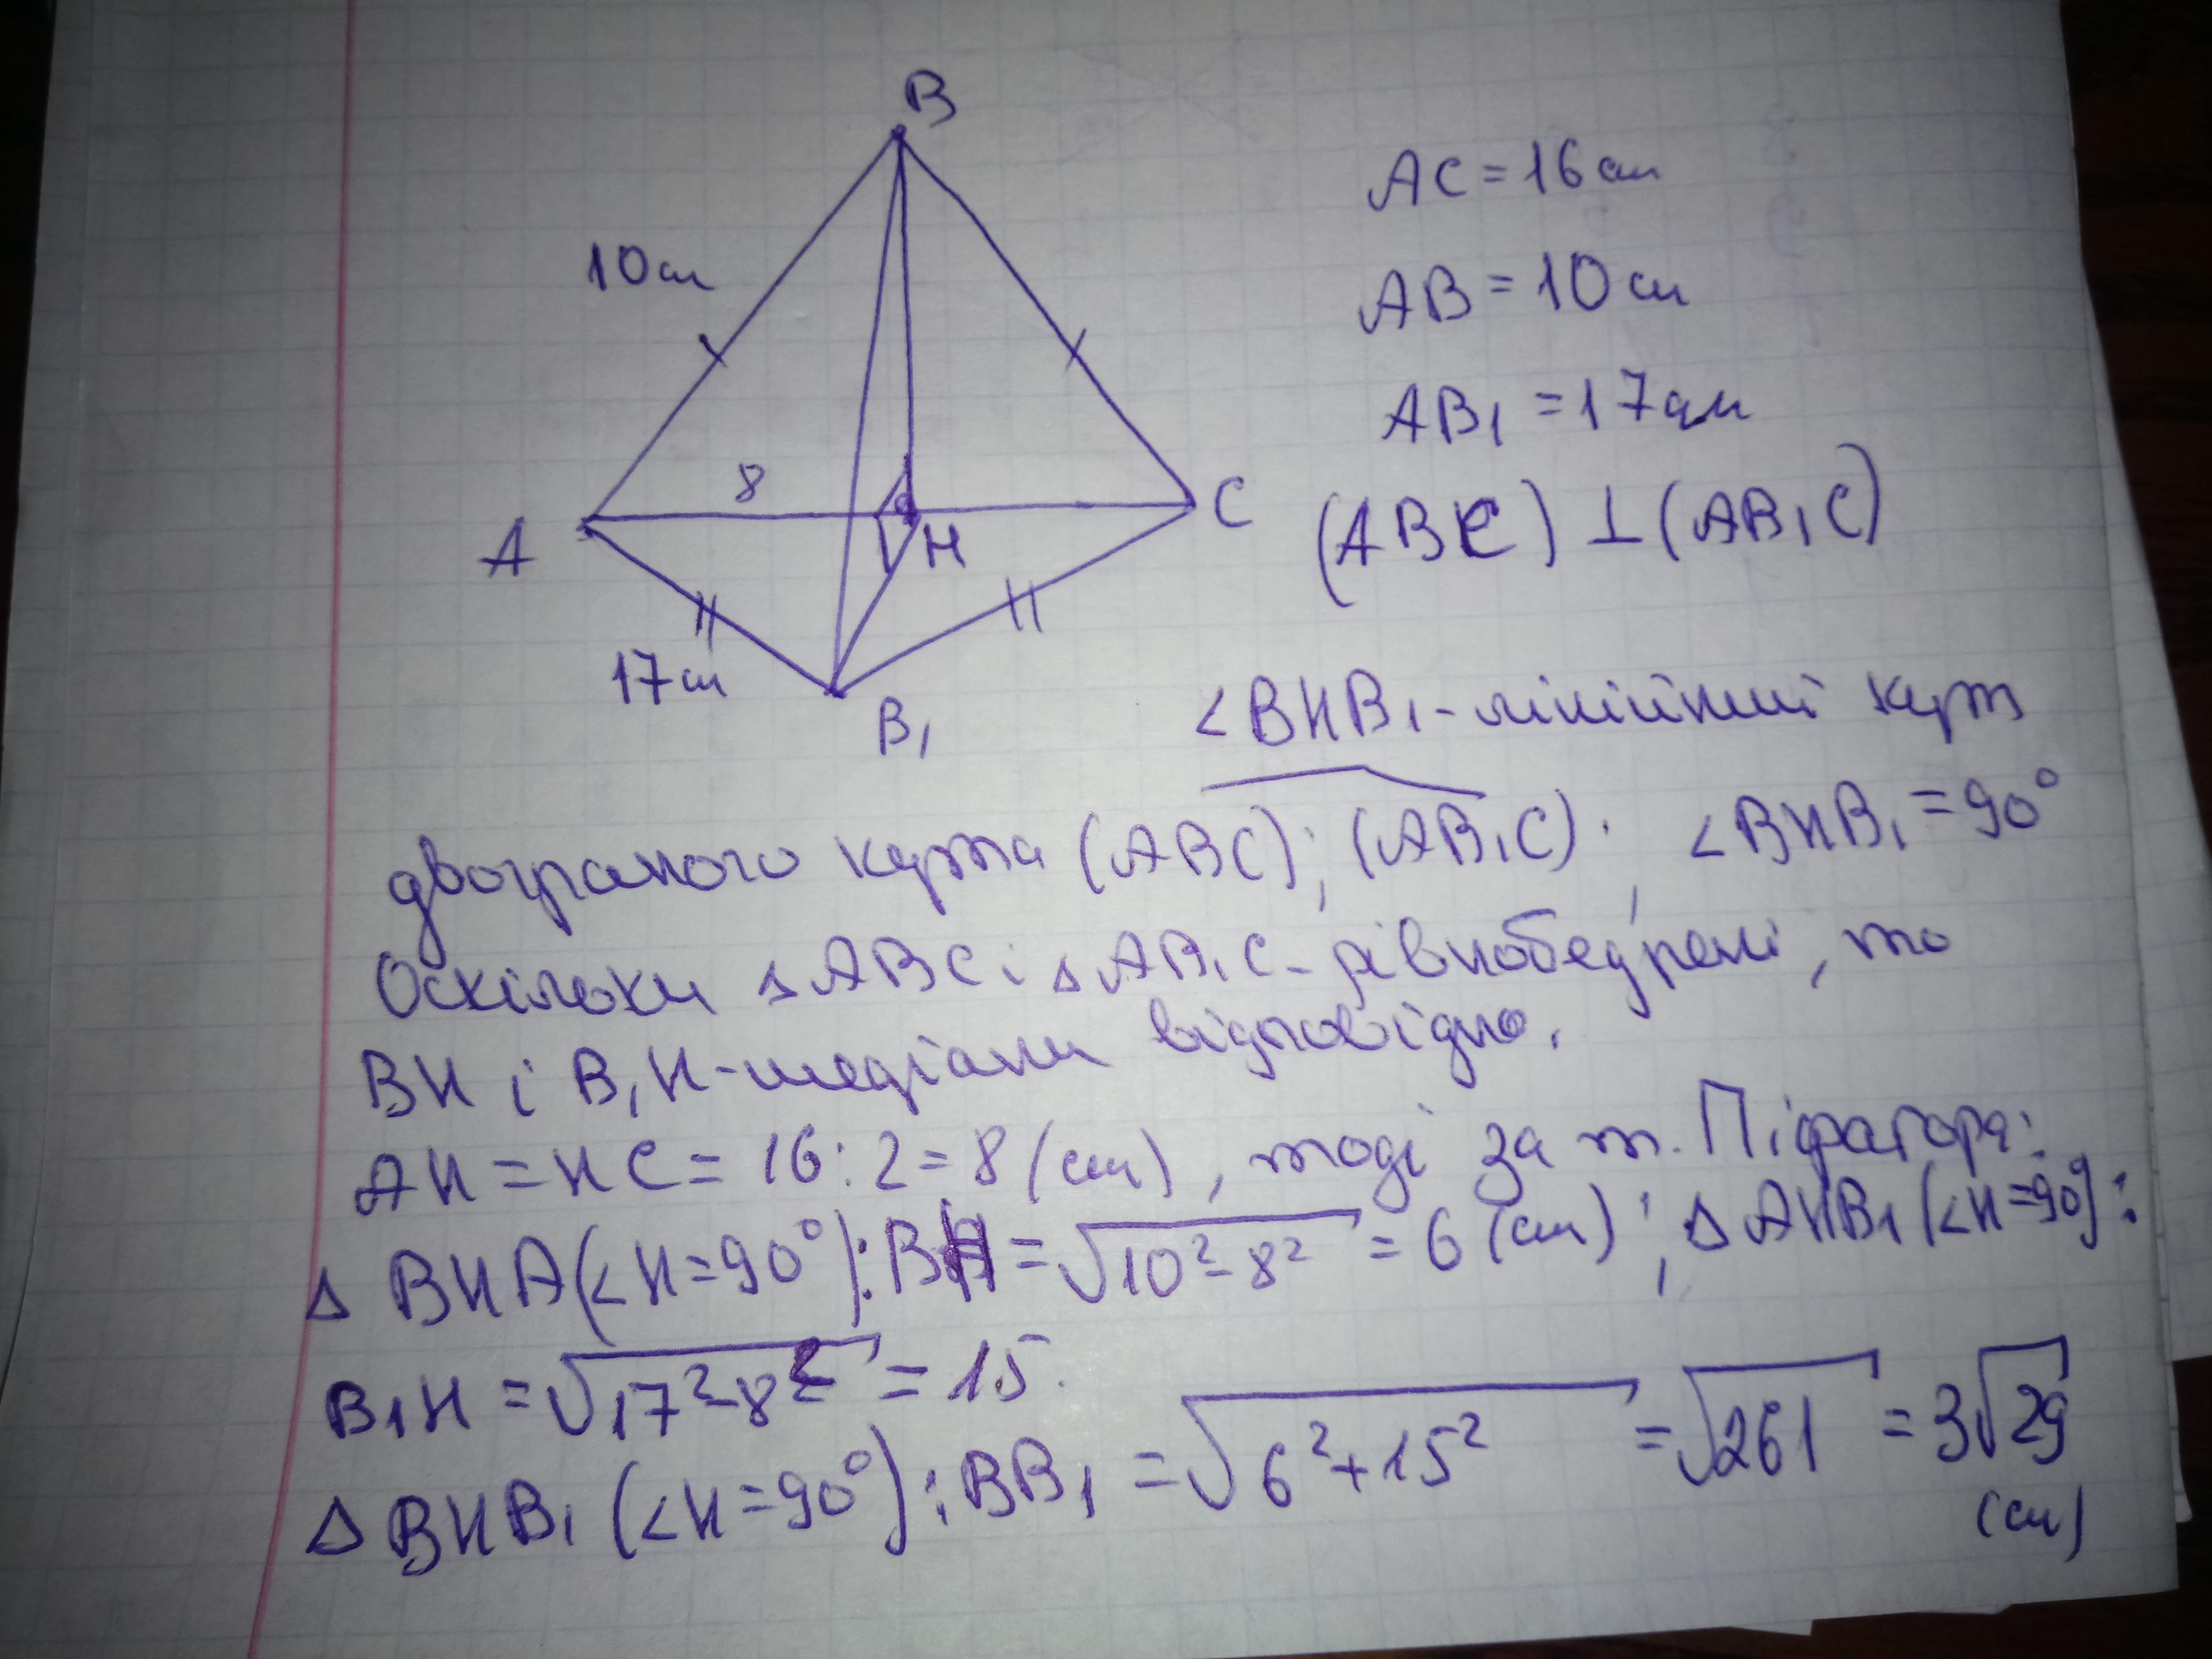 B
AC = 16 см
10 см
AB = 10 см
AB₁ = 17 см
8
A
H
C
(ABC) ⊥ (AB₁C)
17 см
B₁
∠BHB₁ - лінійний кут
двогранного кута (ABC); (AB₁C); ∠BHB₁ = 90°
Оскільки △ABC і △AB₁C - рівнобедрені, то
BH і B₁H - медіани відповідно.
AH = HC = 16 : 2 = 8 (см), тоді за т. Піфагора:
△ BHA (∠H = 90°): BH = √10² - 8² = 6 (см); △ AHB₁ (∠H = 90°):
B₁H = √17² - 8² = 15.
△ BHB₁ (∠H = 90°); BB₁ = √6² + 15² = √261 = 3√29
(см)